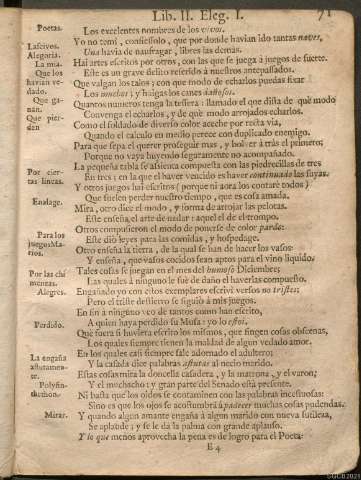 Lib. II. Eleg. I. 71
Poetas. Los excelentes nombres de los vivos.
Yo no temi, confiessolo, que por donde havian ido tantas naves,
Lascivos. Una havia de naufragar, libres las demàs.
Alegoria. Hai artes escritos por otros, con las que se juega à juegos de suerte.
La mia. Este es un grave delito referido à nuestros antepassados.
Que los havian vedado. Que valgan los talos; con que modo de echarlos puedas fixar
Los muchos; y huigas los canes dañosos.
Que ganan. Quantos numeros tenga la tessera: llamado el que dista de què modo
Que pierdan Convenga echarlos, y de què modo arrojados echarlos.
Como el soldado de diverso color aceche por recta via,
Quando el calculo en medio perece con duplicado enemigo.
Para que sepa el querer proseguir mas, y bolver à tràs el primero;
Porque no vaya huyendo seguramente no acompañado.
La pequeña tabla se assienta compuesta con las piedrecillas de tres
Por ciertas lineas. En tres; en la que el haver vencido es haver continuado las suyas.
Y otros juegos hai escritos (porque ni aora los contarè todos)
Enalage. Que suelen perder nuestro tiempo, que es cosa amada.
Mira, otro dice el modo, y forma de arrojar las pelotas.
Este enseña el arte de nadar: aquel el de el trompo.
Otros compusieron el modo de ponerse de color pardo:
Para los juegos Marios. Este diò leyes para las comidas, y hospedage.
Otro enseña la tierra, de la qual se han de hacer los vasos
Y enseña, que vasos cocidos sean aptos para el vino liquido.
Por las chimeneas. Tales cosas se juegan en el mes del humoso Diciembre;
Las quales à ninguno le fue de daño el haverlas compuesto.
Alegres. Engañado yo con estos exemplares escrivi versos no tristes;
Pero el triste destierro se siguiò à mis juegos.
En fin à ninguno veo de tantos como han escrito,
Perdido. A quien haya perdido su Musa: yo lo estoi.
Que fuera si huviera escrito los mimos, que fingen cosas obscenas,
Los quales siempre tienen la maldad de algun vedado amor.
En los quales casi siempre sale adornado el adultero;
La engaña astutamente. Y la casada dice palabras astutas al necio marido.
Estas cosas mira la doncella casadera, y la matrona, y el varon;
Polysindethon. Y el muchacho; y gran parte del Senado està presente.
Ni basta que los oidos se contaminen con las palabras incestuosas:
Mirar. Sino es que los ojos se acostumbrã à padecer muchas cosas pudendas.
Y quando algun amante engaña à algun marido con nueva sutileza,
Se aplaude; y se le dà la palma con grande aplauso.
Y lo que menos aprovecha la pena es de logro para el Poeta:
E 4